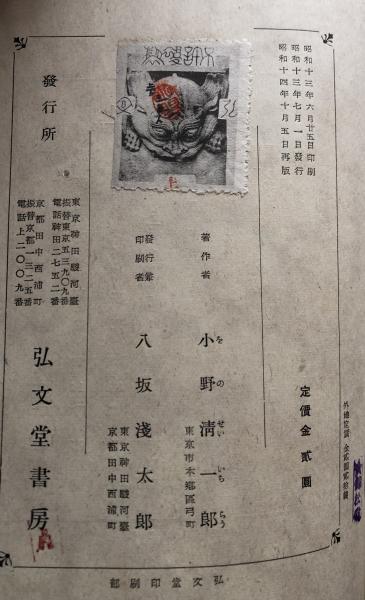 昭和十三年六月廿五日印刷
昭和十三年七月一日發行
昭和十四年十月五日再版
定價金貳圓
外地定價 金貳圓貳拾錢
不許複製
著作者
小野淸一郞
をのせいいちらう
東京市本鄕區弓町
發行兼印刷者
八坂淺太郎
東京神田駿河臺
京都田中西浦町
發行所
東京神田駿河臺
振替東京五三九〇九番
電話神田二七五二番
京都田中西浦町
振替京都一三二五番
電話上二〇〇九番
弘文堂書房
弘文堂印刷部